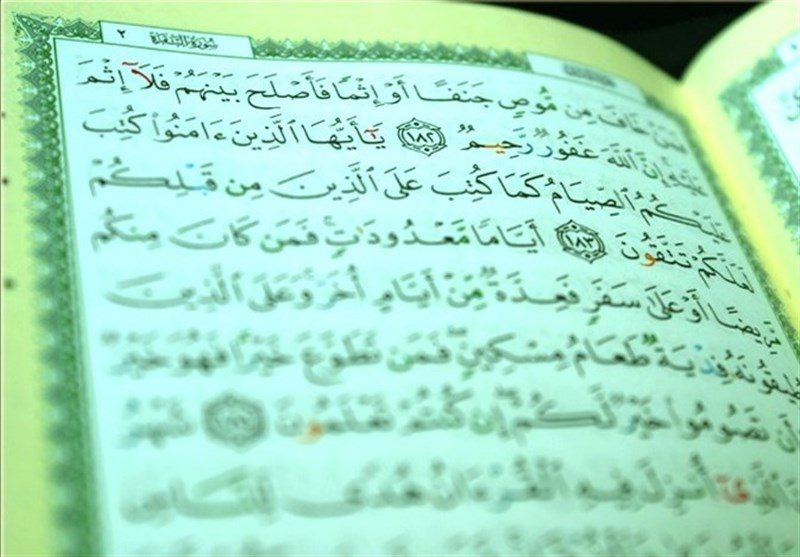 سُورَةُ البَقَرَةِ ٢
فَمَنْ خَافَ مِن مُّوصٍ جَنَفًا أَوْ إِثْمًا فَأَصْلَحَ بَيْنَهُمْ فَلَآ إِثْمَ
عَلَيْهِ إِنَّ ٱللَّهَ غَفُورٌ رَّحِيمٌ ١٨٢ يَٰٓأَيُّهَا ٱلَّذِينَ ءَامَنُوا۟ كُتِبَ
عَلَيْكُمُ ٱلصِّيَامُ كَمَا كُتِبَ عَلَى ٱلَّذِينَ مِن قَبْلِكُمْ
لَعَلَّكُمْ تَتَّقُونَ ١٨٣ أَيَّامًا مَّعْدُودَٰتٍ فَمَن كَانَ مِنكُم
مَّرِيضًا أَوْ عَلَىٰ سَفَرٍ فَعِدَّةٌ مِّنْ أَيَّامٍ أُخَرَ وَعَلَى ٱلَّذِينَ
يُطِيقُونَهُۥ فِدْيَةٌ طَعَامُ مِسْكِينٍ فَمَن تَطَوَّعَ خَيْرًا فَهُوَ خَيْرٌ
أَن تَصُومُوا۟ خَيْرٌ لَّكُمْ إِن كُنتُمْ تَعْلَمُونَ شَهْرُ
ٱلَّذِىٓ أُنزِلَ فِيهِ ٱلْقُرْءَانُ هُدًى لِّلنَّاسِ